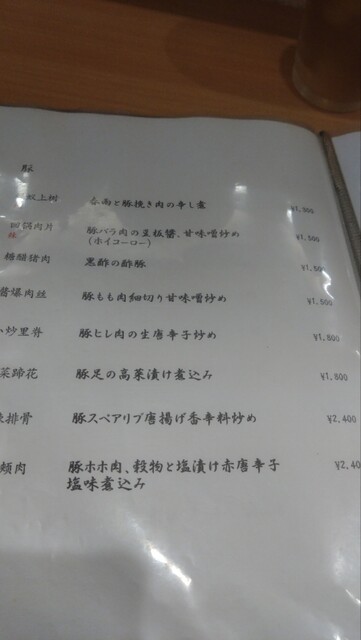 豚
蚁上树 春雨と豚挽き肉の辛し煮
回鍋肉片 豚バラ肉の豆板醬、甘味噌炒め
辣 (ホイコーロー)
糖醋猪肉 黒酢の酢豚
醬爆肉丝 豚もも肉細切り甘味噌炒め
炒里脊 豚ヒレ肉の生唐辛子炒め ¥1,800
菜蹄花 豚足の高菜漬け煮込み ¥1,800
排骨 豚スペアリブ唐揚げ香辛料炒め ¥2,400
頬肉 豚ホホ肉、穀物と塩漬け赤唐辛子 ¥2,40
塩味煮込み